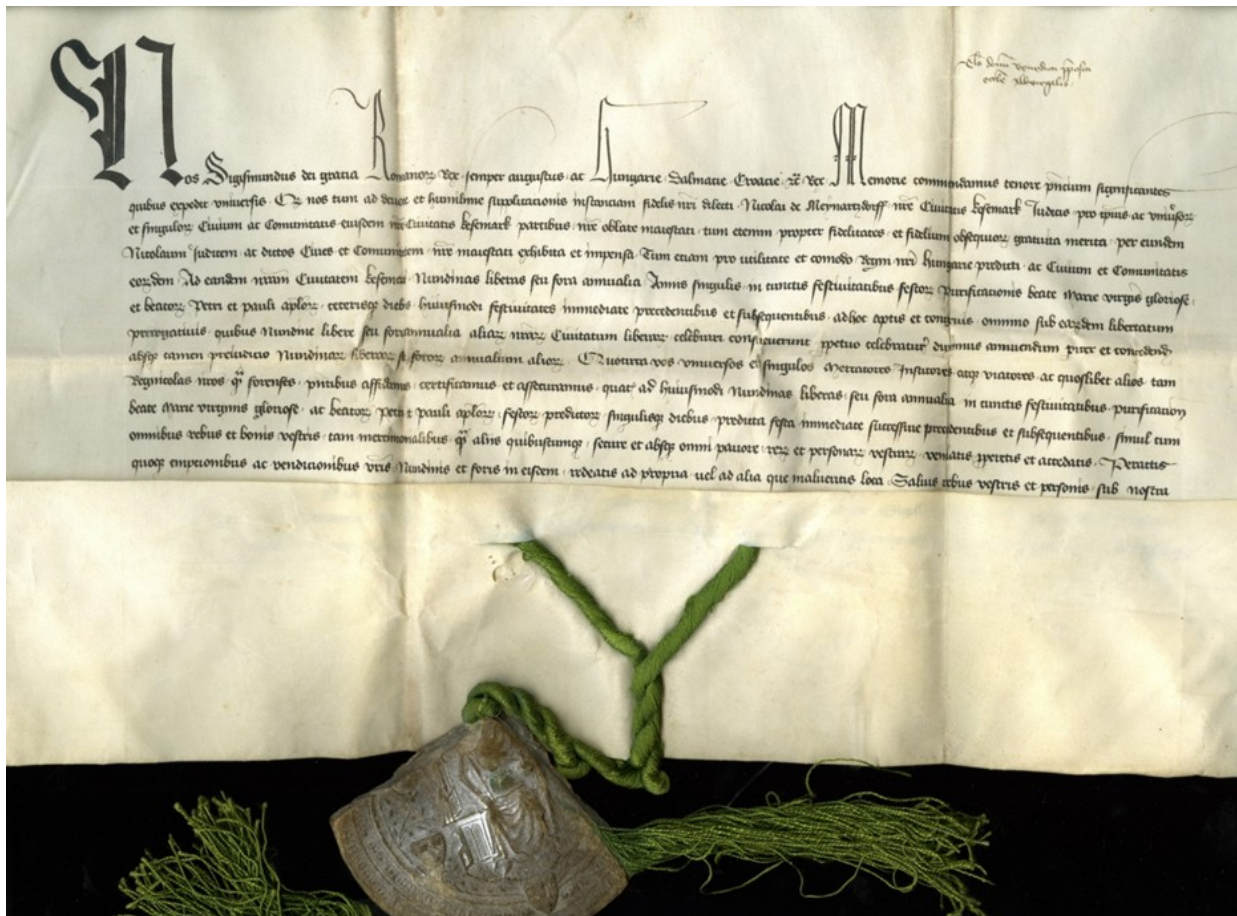 Nos Sigismundus dei gratia Romanoꝝ Rex semper augustus ac Hungarie Dalmatie Croacie ꝛc̄ Rex Memorie commendamus tenore pn̄cium significantes
quibus expedit vniuersis · Ꝙ nos tum ad deuote et humilime supplicacionis instanciam fidelis nr̄i dilecti Nicolai de Meynartzdorff nr̄e Ciuitatis kesmark Judicis pro ipsius ac vniūsoꝝ
et singuloꝝ Ciuium ac Comunitatis eiusdem nr̄e Ciuitatis kesmark partibus nr̄e oblate maiestati · tum etenim propter fidelitates · et fidelium obsequioꝝ gratuita merita · per eundem
Nicolaum Judicem ac dictos Ciues et Comunitatem nr̄e maiestati exhibita et impensa · Tum etiam pro vtilitate et comodo Regni nr̄i Hungarie predicti · ac Ciuium et Comunitatis
eoꝝdem · Ad eandem nr̄am Ciuitatem Nundinas liberas seu fora annualia Annis singulis · in cunctis festiuitatibus festoꝝ Purificacionis beate Marie virgīs gloriose ·
et beatoꝝ Petri et pauli aploꝝ · ceterisqꝫ diebꝫ huiusmodi festiuitates immediate precedentibus et subsequentibus · adhoc aptis et congruis · omnino sub eaꝝdem libertatum
prerogatiuis · quibus Nundine libere seu fora annualia aliaꝝ nr̄aꝝ Ciuitatum liberaꝝ celebrari consueuerunt ꝑpetuo celebratur̄ duximus annuendum et concedend
absqꝫ tamen preiudicio Nundinaꝝ liberaꝝ et foroꝝ annualium alioꝝ · Quocirca vos vniuersos et singulos Mercatores Institores atqꝫ viatores ac quoslibet alios tam
Regnicolas nr̄os q̄ꝫ forenses · pn̄tibus affidamus · certificamus et assecuramus · quat̄ ad huiusmodi Nundinas liberas · seu fora annualia in cunctis festiuitatibus · purificacioīs
beate Marie virginis gloriose · ac beatoꝝ Petri et pauli aploꝝ · festoꝝ predictoꝝ singulisqꝫ diebus · predicta festa immediate successiue precedentibus et subsequentibus · simul cum
omnibus rebus et bonis vestris · tam mercimonalibus q̄ꝫ aliis quibuscumqꝫ · secure et absqꝫ omni pauore · reꝝ et personaꝝ vestraꝝ · veniatis ꝓperetis et accedatis · Peractis
quoqꝫ empcionibus ac vendicionibus vr̄is Nundinis et foris in eisdem · redeatis ad propria vel ad alia que malueritis loca · Saluis rebus vestris et personis · sub nostra